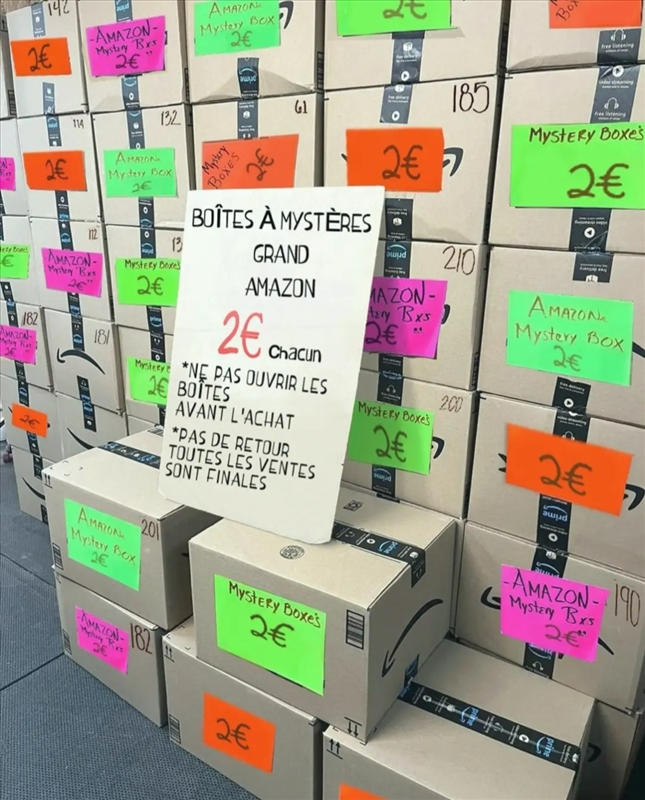 142
2€
-AMAZON-
Mystery Bxs
2€
AMAZON
Mystery Box
2€
2€
prime
free listening
114
2€
132
AMAZON
Mystery Box
2€
61
Mystery
Boxes
2€
185
2€
MYSTERY BOXE'S
2€
112
AMAZON-
Mystery Bxs
2€
MYSTERY BOXES
2€
210
AMAZON-
Mystery Bxs
2€
AMAZON
MYSTERY BOX
2€
BOÎTES À MYSTÈRES
GRAND
AMAZON
2€ Chacun
*NE PAS OUVRIR LES
BOÎTES
AVANT L'ACHAT
*PAS DE RETOUR
TOUTES LES VENTES
SONT FINALES
182
181
2€
MYSTERY BOXE'S
2€
200
2€
prime
201
AMAZON
MYSTERY BOX
2€
MYSTERY BOXE'S
2€
-AMAZON-
Mystery Bxs
2€
190
AMAZON-
Mystery Bxs
2€
182
2€
prime